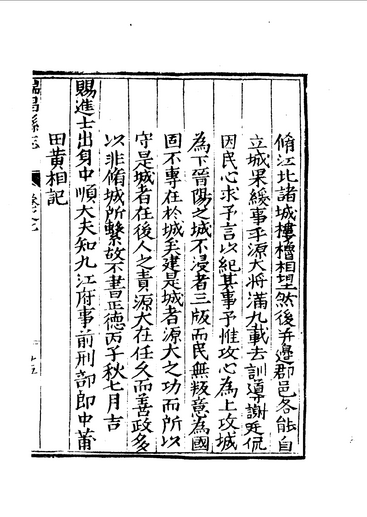 脩江北諸城樓櫓相望然後并邊郡邑各能自
立城果緩事乎源大將滿九載去訓導謝廷侃
因民心求予言以紀其事予惟攻心為上攻城
為下晉陽之城不浸者三版而民無叛意為國
固不專在於城矣建是城者源大之功而所以
守是城者在後人之責源大在任久而善政多
以非脩城所繫故不書正德丙子秋七月吉
賜進士出身中順大夫知九江府事前刑部郎中莆
田黄相記
瑞昌縣志
卷之七